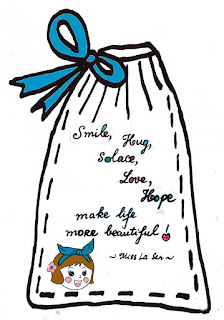 Smile, Hug,
Solace,
Love,
Hope
make life
more beautiful!
~ Miss La Sen ~